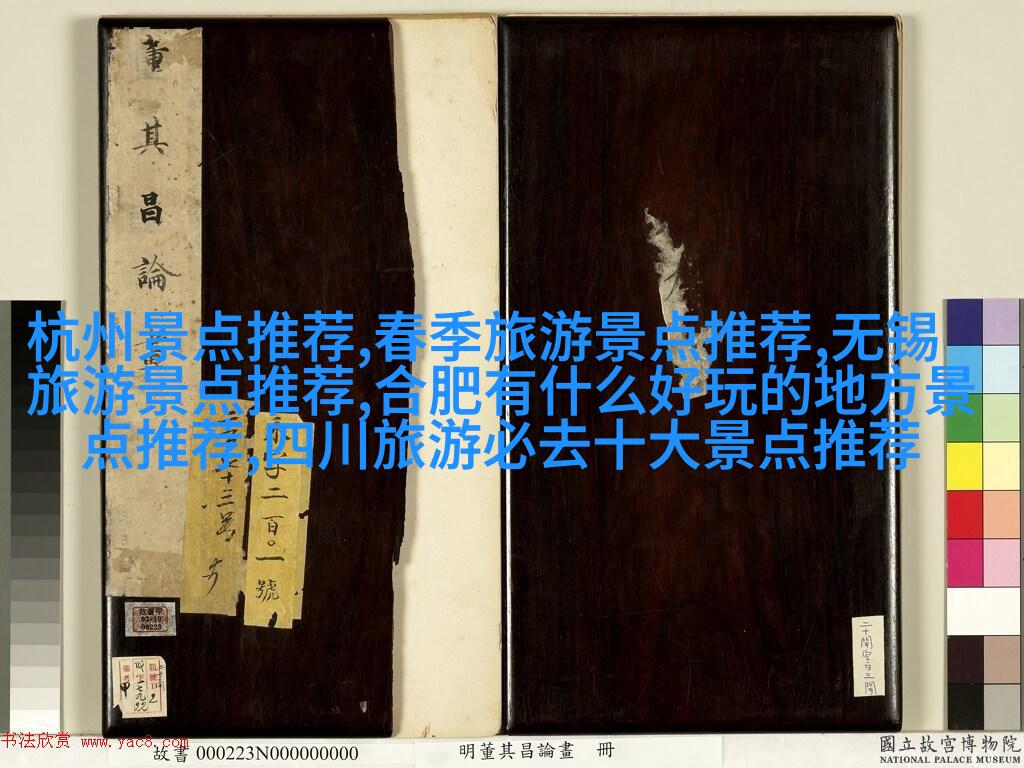 董其昌論畫
杭州景点推荐,春季旅游景点推荐,无锡
旅游景点推荐,合肥有什么好玩的地方景
点推荐,四川旅游必去十大景点推荐
十三号
字二百〇一號
故書甲
00223
二十開空白三開
书法欣赏 www.yac8.com
故書 000223N000000000
明董其昌論畫 冊
國立故宮博物院
NATIONAL PALACE MUSEUM